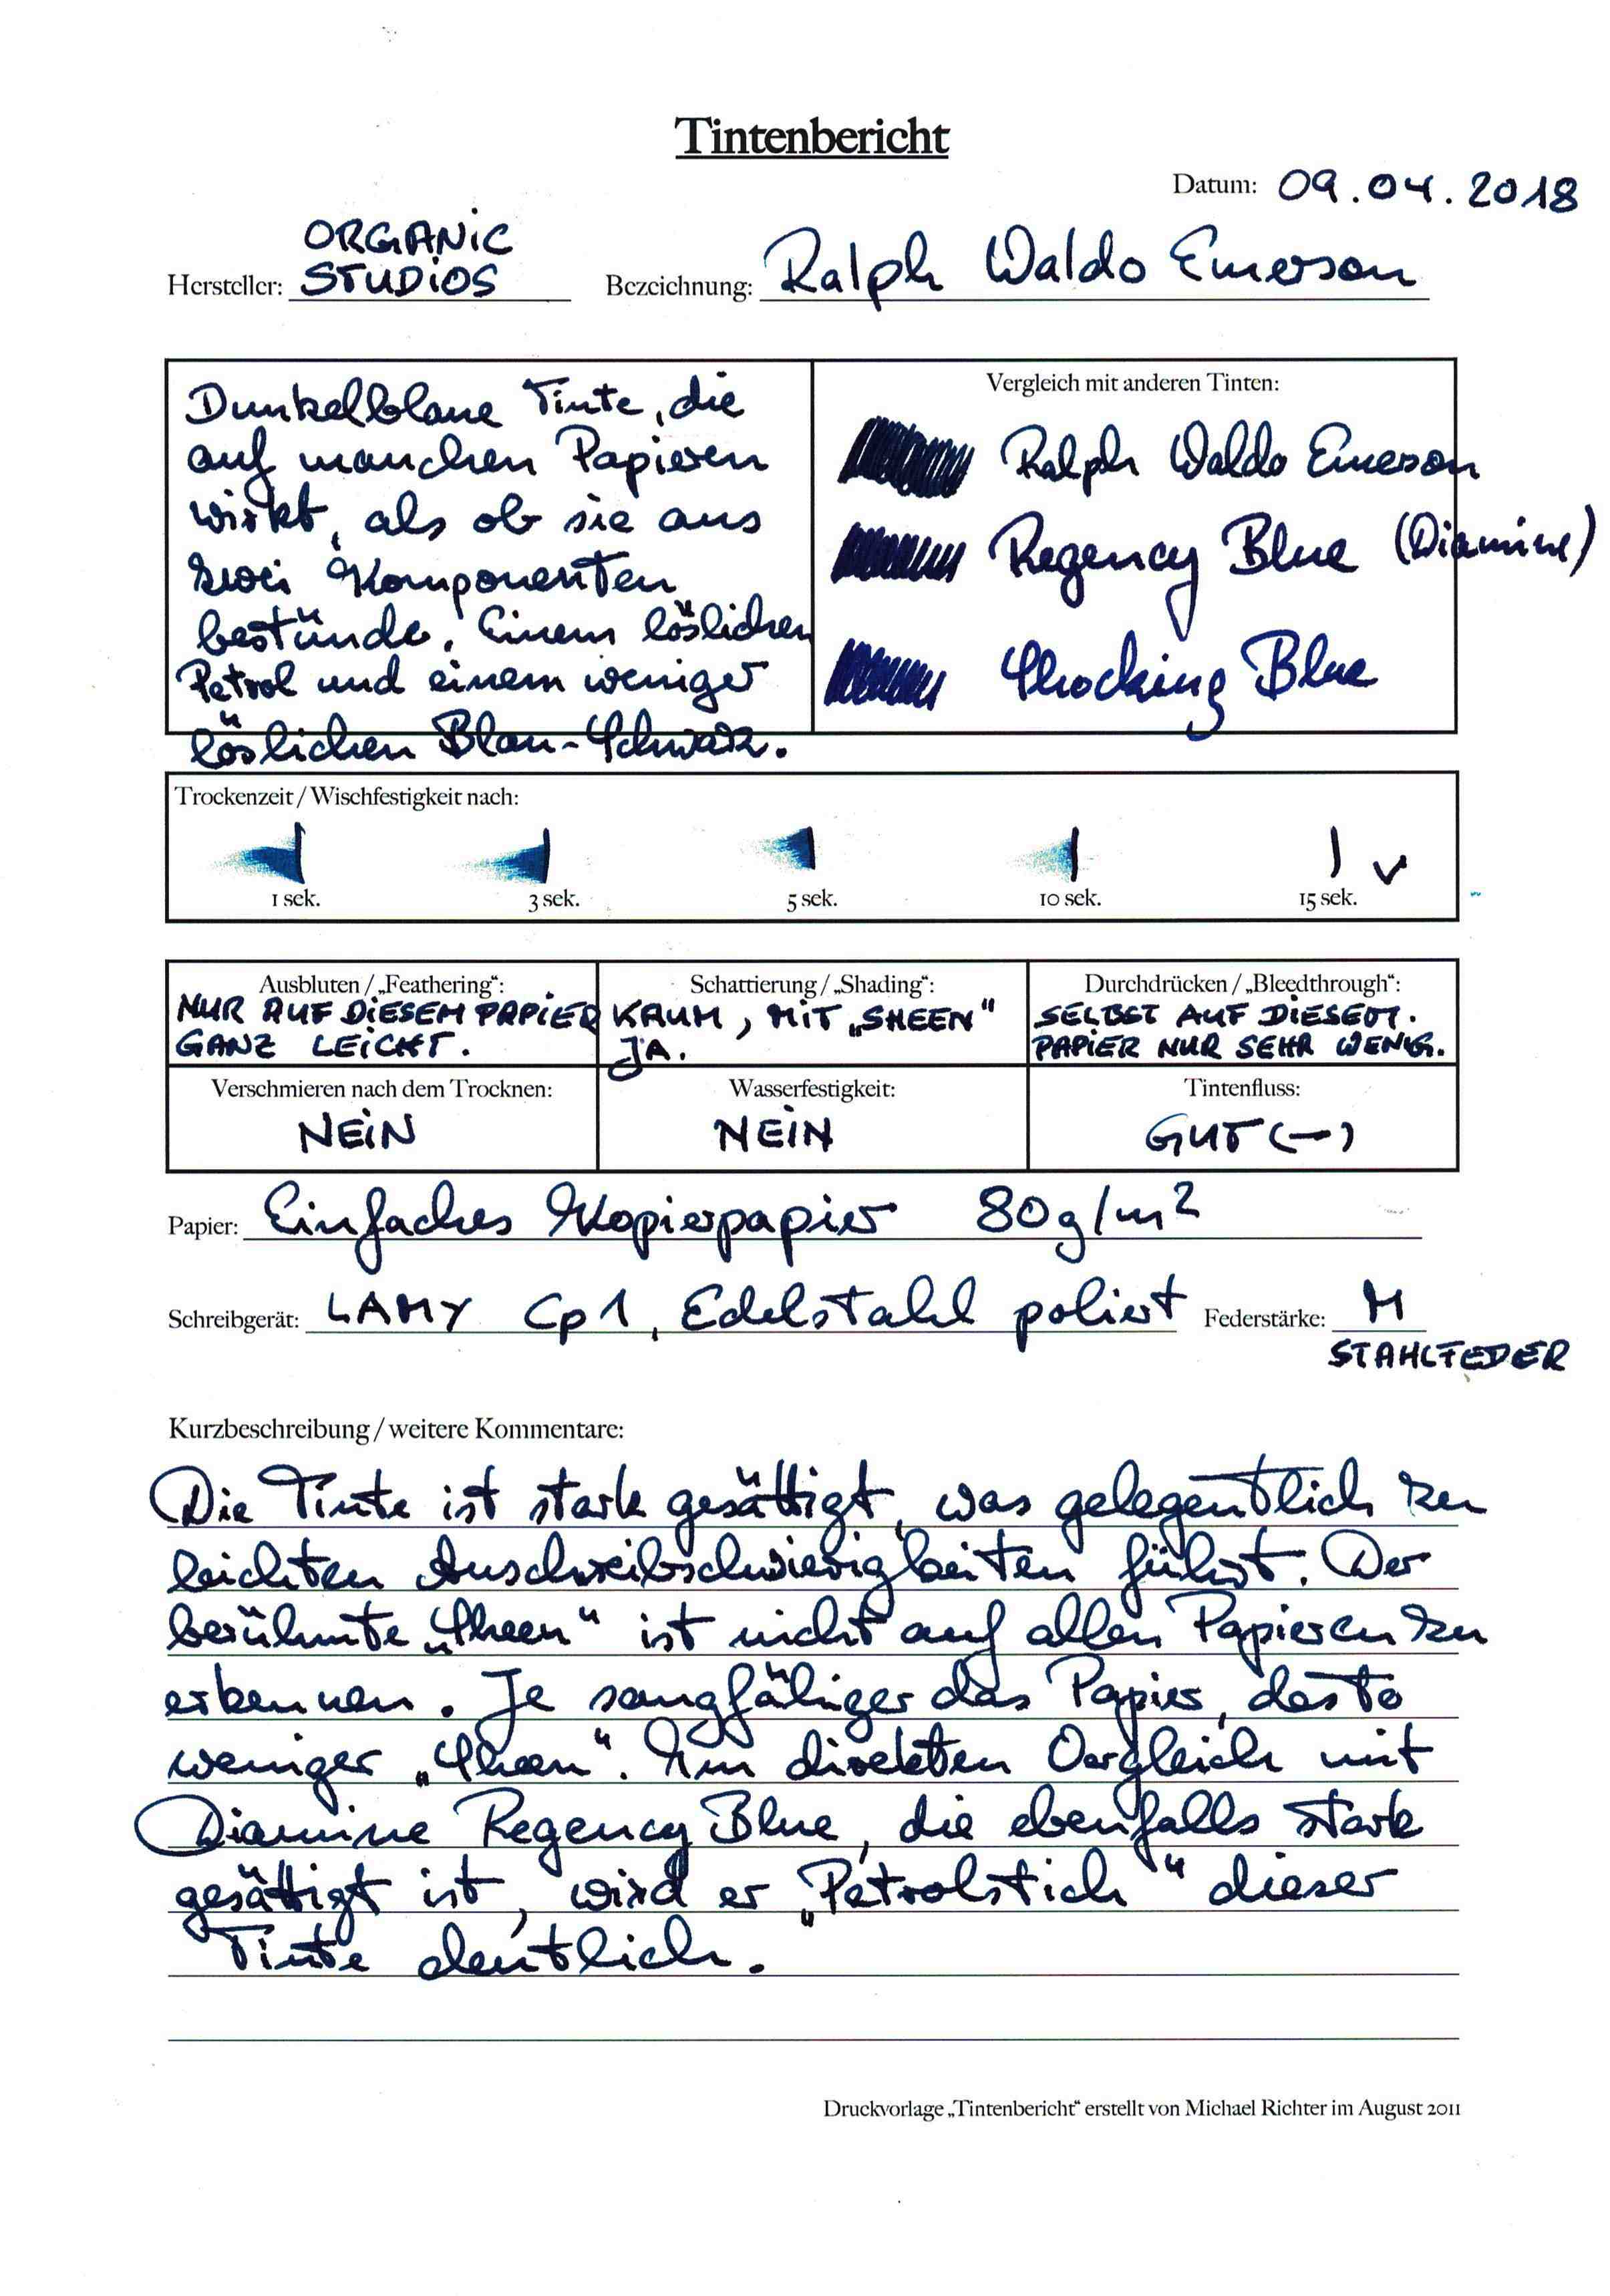 Tintenbericht
Datum: 09.04.2018
ORGANIC
Hersteller: STUDIOS Bezeichnung: Ralph Waldo Emerson
Dunkelblaue Tinte, die
auf manchen Papieren
wirkt, als ob sie aus
zwei Komponenten
bestünde. Einem löslichen
Petrol und einem weniger
löslichen Blau-Schwarz.
Vergleich mit anderen Tinten:
Ralph Waldo Emerson
Regency Blue (Diamine)
Shocking Blue
Trockenzeit / Wischfestigkeit nach:
1 sek. 3 sek. 5 sek. 10 sek. 15 sek.
Ausbluten / „Feathering“:
NUR AUF DIESEM PAPIER
GANZ LEICHT.
Schattierung / „Shading“:
KAUM, MIT „SHEEN“
JA.
Durchdrücken / „Bleedthrough“:
SELBST AUF DIESEM.
PAPIER NUR SEHR WENIG.
Verschmieren nach dem Trocknen:
NEIN
Wasserfestigkeit:
NEIN
Tintenfluss:
GUT (–)
Papier: Einfaches Kopierpapier 80g/m²
Schreibgerät: LAMY Cp1, Edelstahl poliert Federstärke: M
STAHLFEDER
Kurzbeschreibung / weitere Kommentare:
Die Tinte ist stark gesättigt, was gelegentlich zu
leichten Anschreibschwierigkeiten führt. Der
berühmte „Sheen“ ist nicht auf allen Papieren zu
erkennen. Je saugfähiger das Papier, desto
weniger „Sheen“. Im direkten Vergleich mit
Diamine Regency Blue, die ebenfalls stark
gesättigt ist, wird er „Petrolstich“ dieser
Tinte deutlich.
Druckvorlage „Tintenbericht“ erstellt von Michael Richter im August 2011